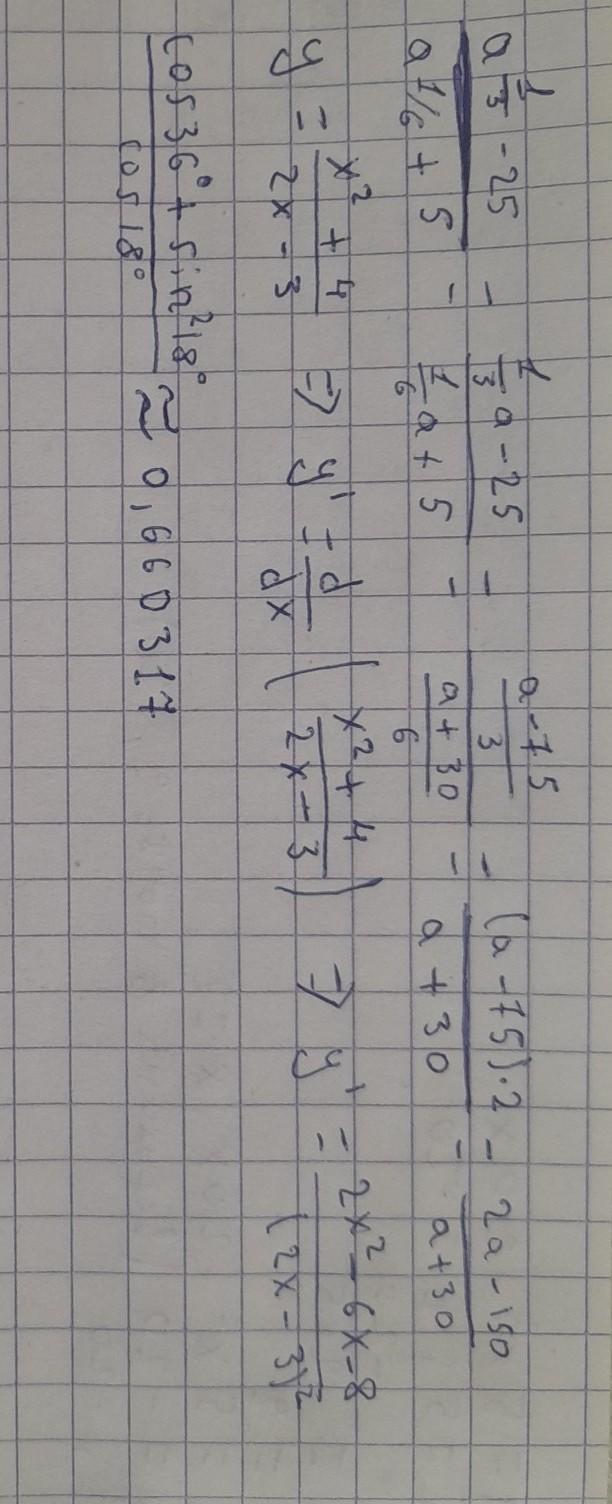 (a^{1/3} - 25)/(a^{1/6} + 5) = (1/3 a - 25)/(1/6 a + 5) = ((a - 75)/3)/((a + 30)/6) = ((a - 75)·2)/(a + 30) = (2a - 150)/(a + 30)
y = (x² + 4)/(2x - 3) ⇒ y' = d/dx ((x² + 4)/(2x - 3)) ⇒ y' = (2x² - 6x - 8)/(2x - 3)²
(cos 36° + sin² 18°)/(cos 18°) ≈ 0,660317